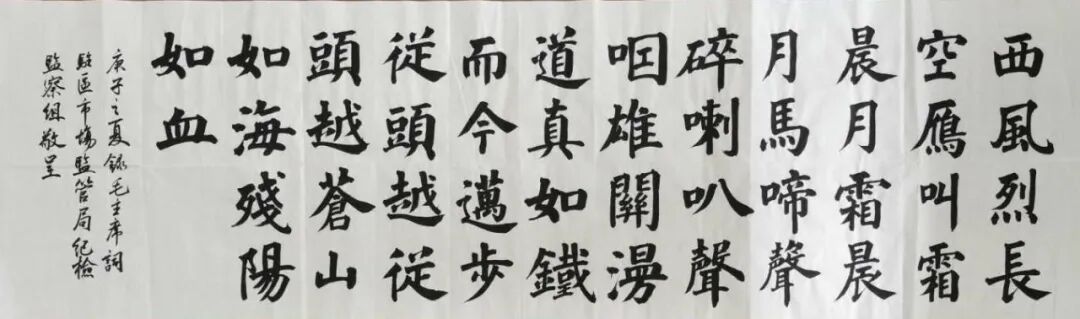 西風烈長
空鴈叫霜
晨月霜晨
月馬啼聲
碎喇叭聲
咽雄關漫
道真如鐵
而今邁步
從頭越從
頭越蒼山
如海殘陽
如血
庚子之夏録毛主席詞
駐區市場監管局紀檢
監察組敬呈